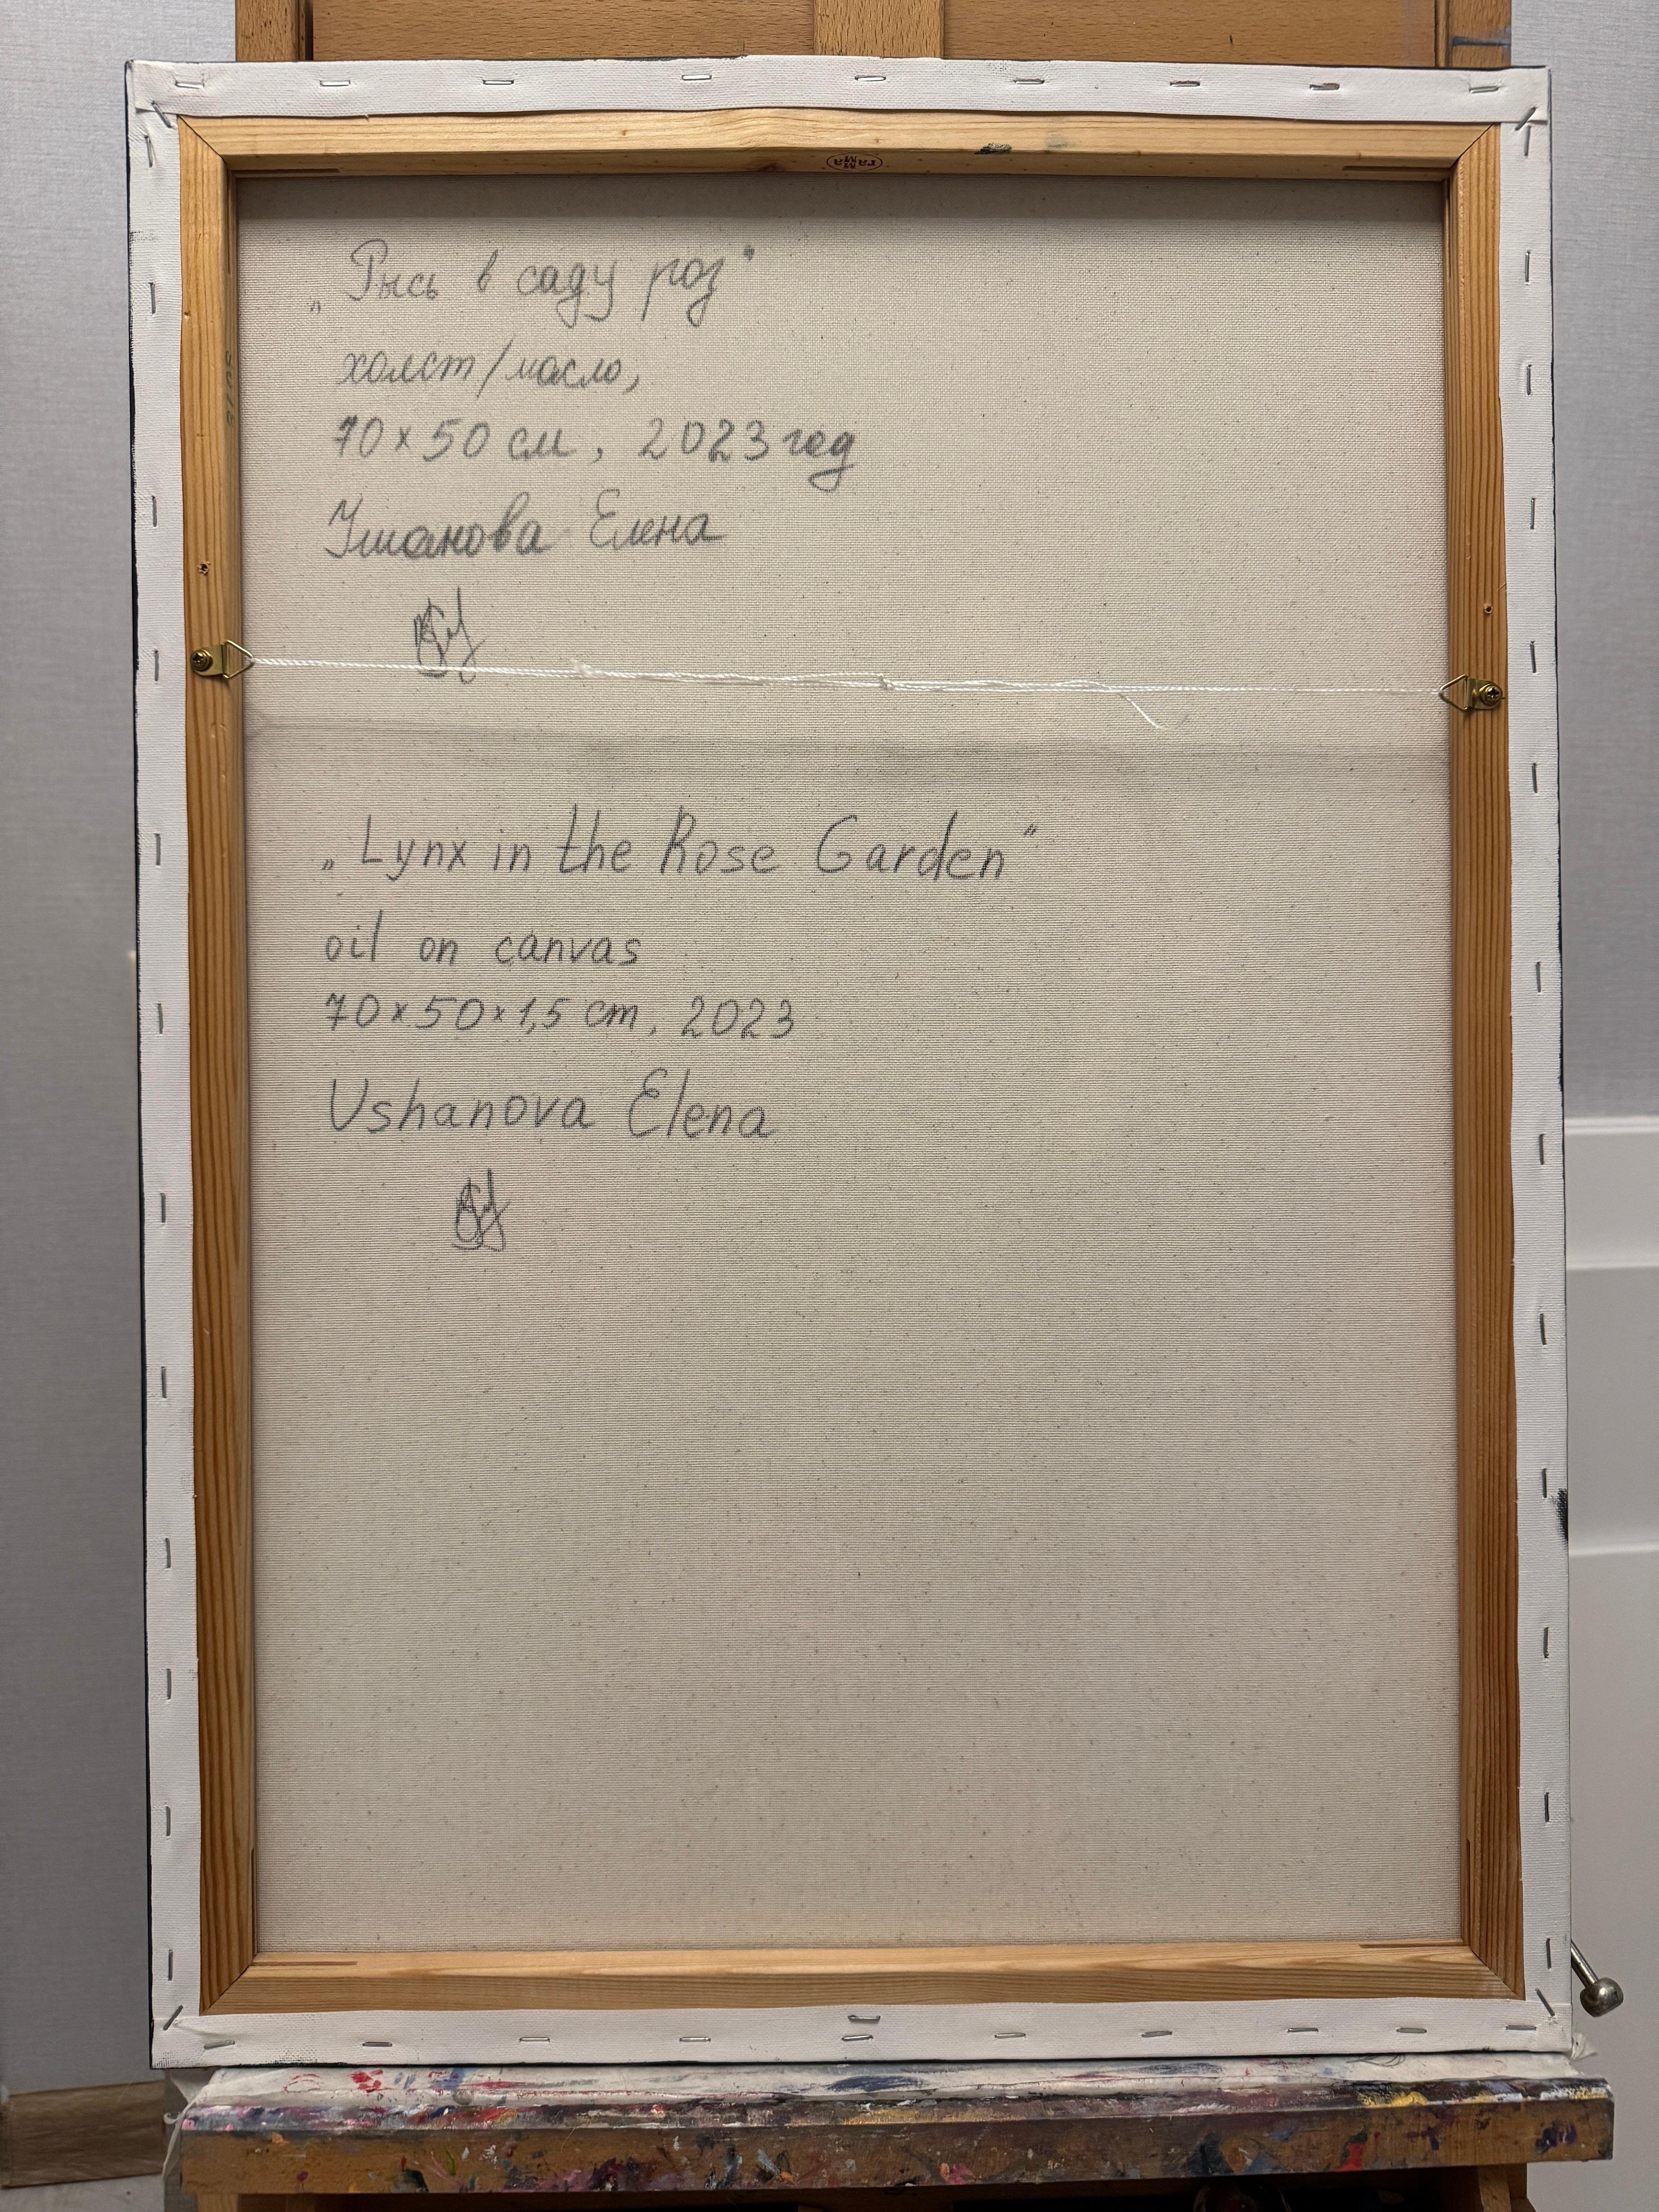 „Рысь в саду роз“
холст/масло,
70×50 см, 2023 год
Ушанова Елена
„Lynx in the Rose Garden“
oil on canvas
70×50×1,5 cm, 2023
Ushanova Elena